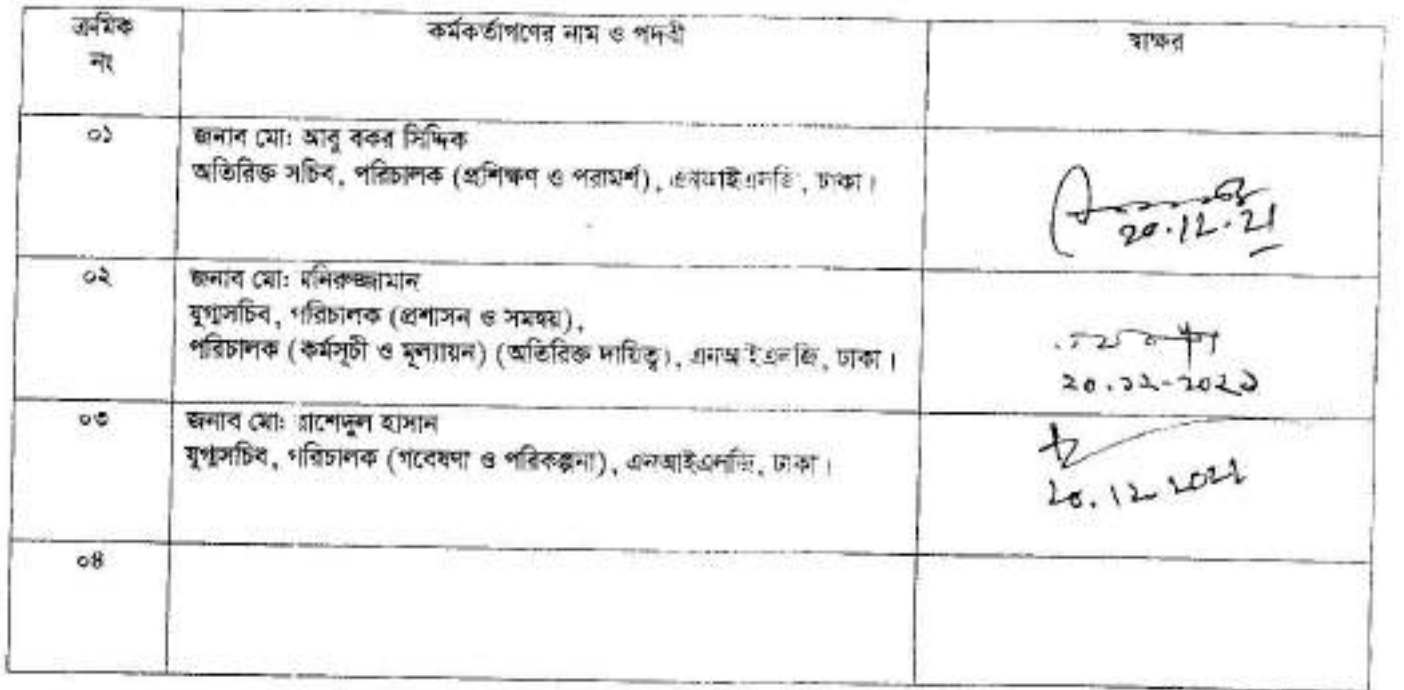 ক্রমিক
নং
কর্মকর্তাগণের নাম ও পদবী
স্বাক্ষর
০১
জনাব মো: আবু বকর সিদ্দিক
অতিরিক্ত সচিব, পরিচালক (প্রশিক্ষণ ও পরামর্শ), এনআইএলজি, ঢাকা।
20.12.21
০২
জনাব মো: মনিরুজ্জামান
যুগ্মসচিব, পরিচালক (প্রশাসন ও সমন্বয়),
পরিচালক (কর্মসূচী ও মূল্যায়ন) (অতিরিক্ত দায়িত্ব), এনআইএলজি, ঢাকা।
২০.১২-২০২১
০৩
জনাব মো: রাশেদুল হাসান
যুগ্মসচিব, পরিচালক (গবেষণা ও পরিকল্পনা), এনআইএলজি, ঢাকা।
20.12.2021
০৪